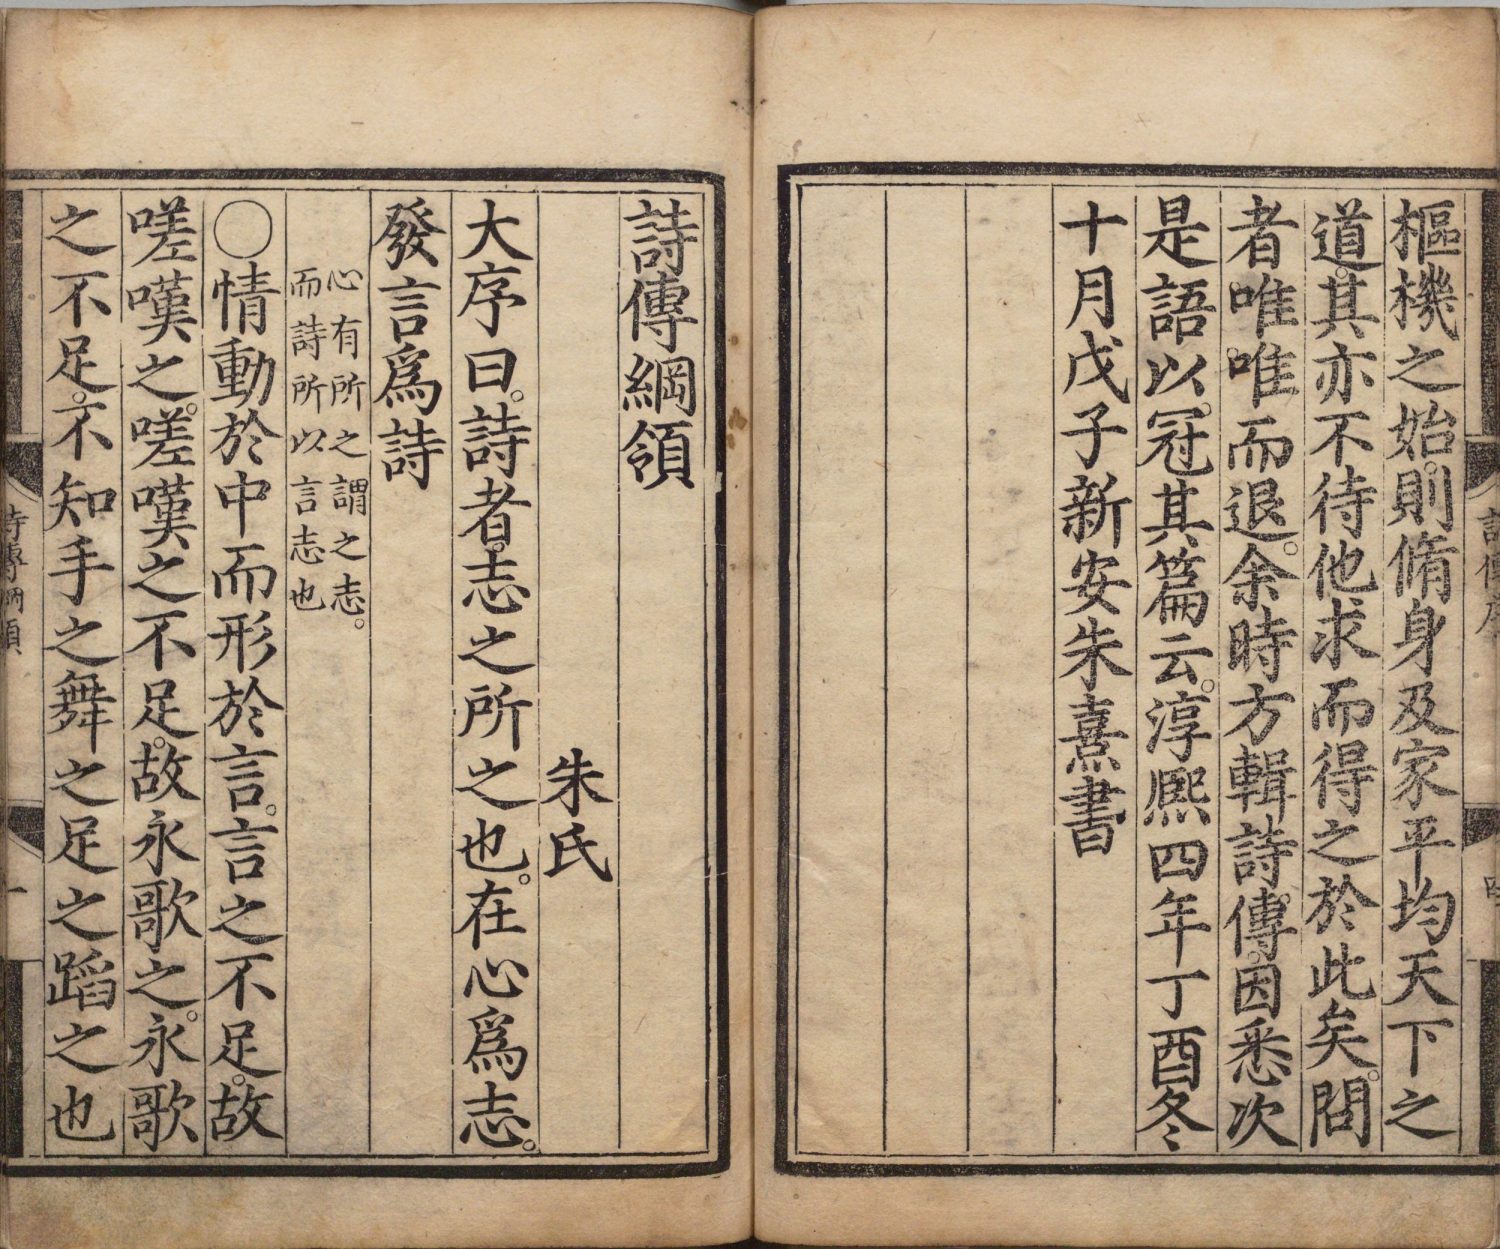 樞機之始。則脩身及家平均天下之
道。其亦不待他求而得之於此矣。問
者唯。唯而退。余時方輯詩傳。因悉次
是語以。冠其篇云。淳熈四年丁酉冬
十月戊子新安朱熹書
詩傳綱領
朱氏
大序曰。詩者。志之所之也。在心爲志。
發言爲詩
心有所之謂之志。
而詩所以言志也
○情動於中而形於言。言之不足。故
嗟嘆之。嗟嘆之不足。故永歌之。永歌
之不足。不知手之舞之足之蹈之也
詩傳綱領
一